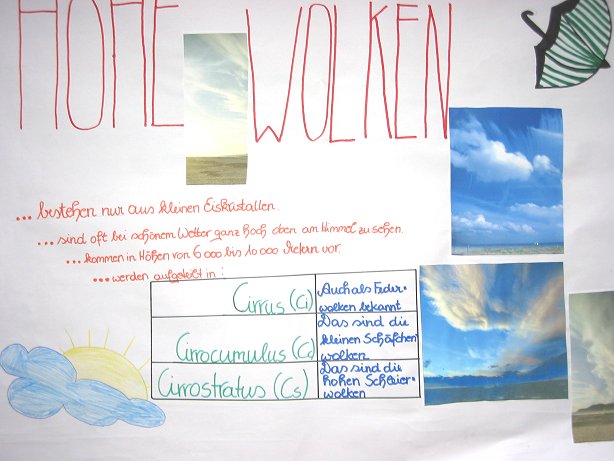 HOHE WOLKEN
... bestehen nur aus kleinen Eiskristallen.
... sind oft bei schönem Wetter ganz hoch oben am Himmel zu sehen.
... kommen in Höhen von 6000 bis 10 000 Metern vor.
... werden aufgeteilt in :
Cirrus (Ci)
Auch als Feder-
wolken bekannt
Cirrocumulus (Cc)
Das sind die
kleinen Schäfchen
wolken
Cirrostratus (Cs)
Das sind die
hohen Schleier-
wolken